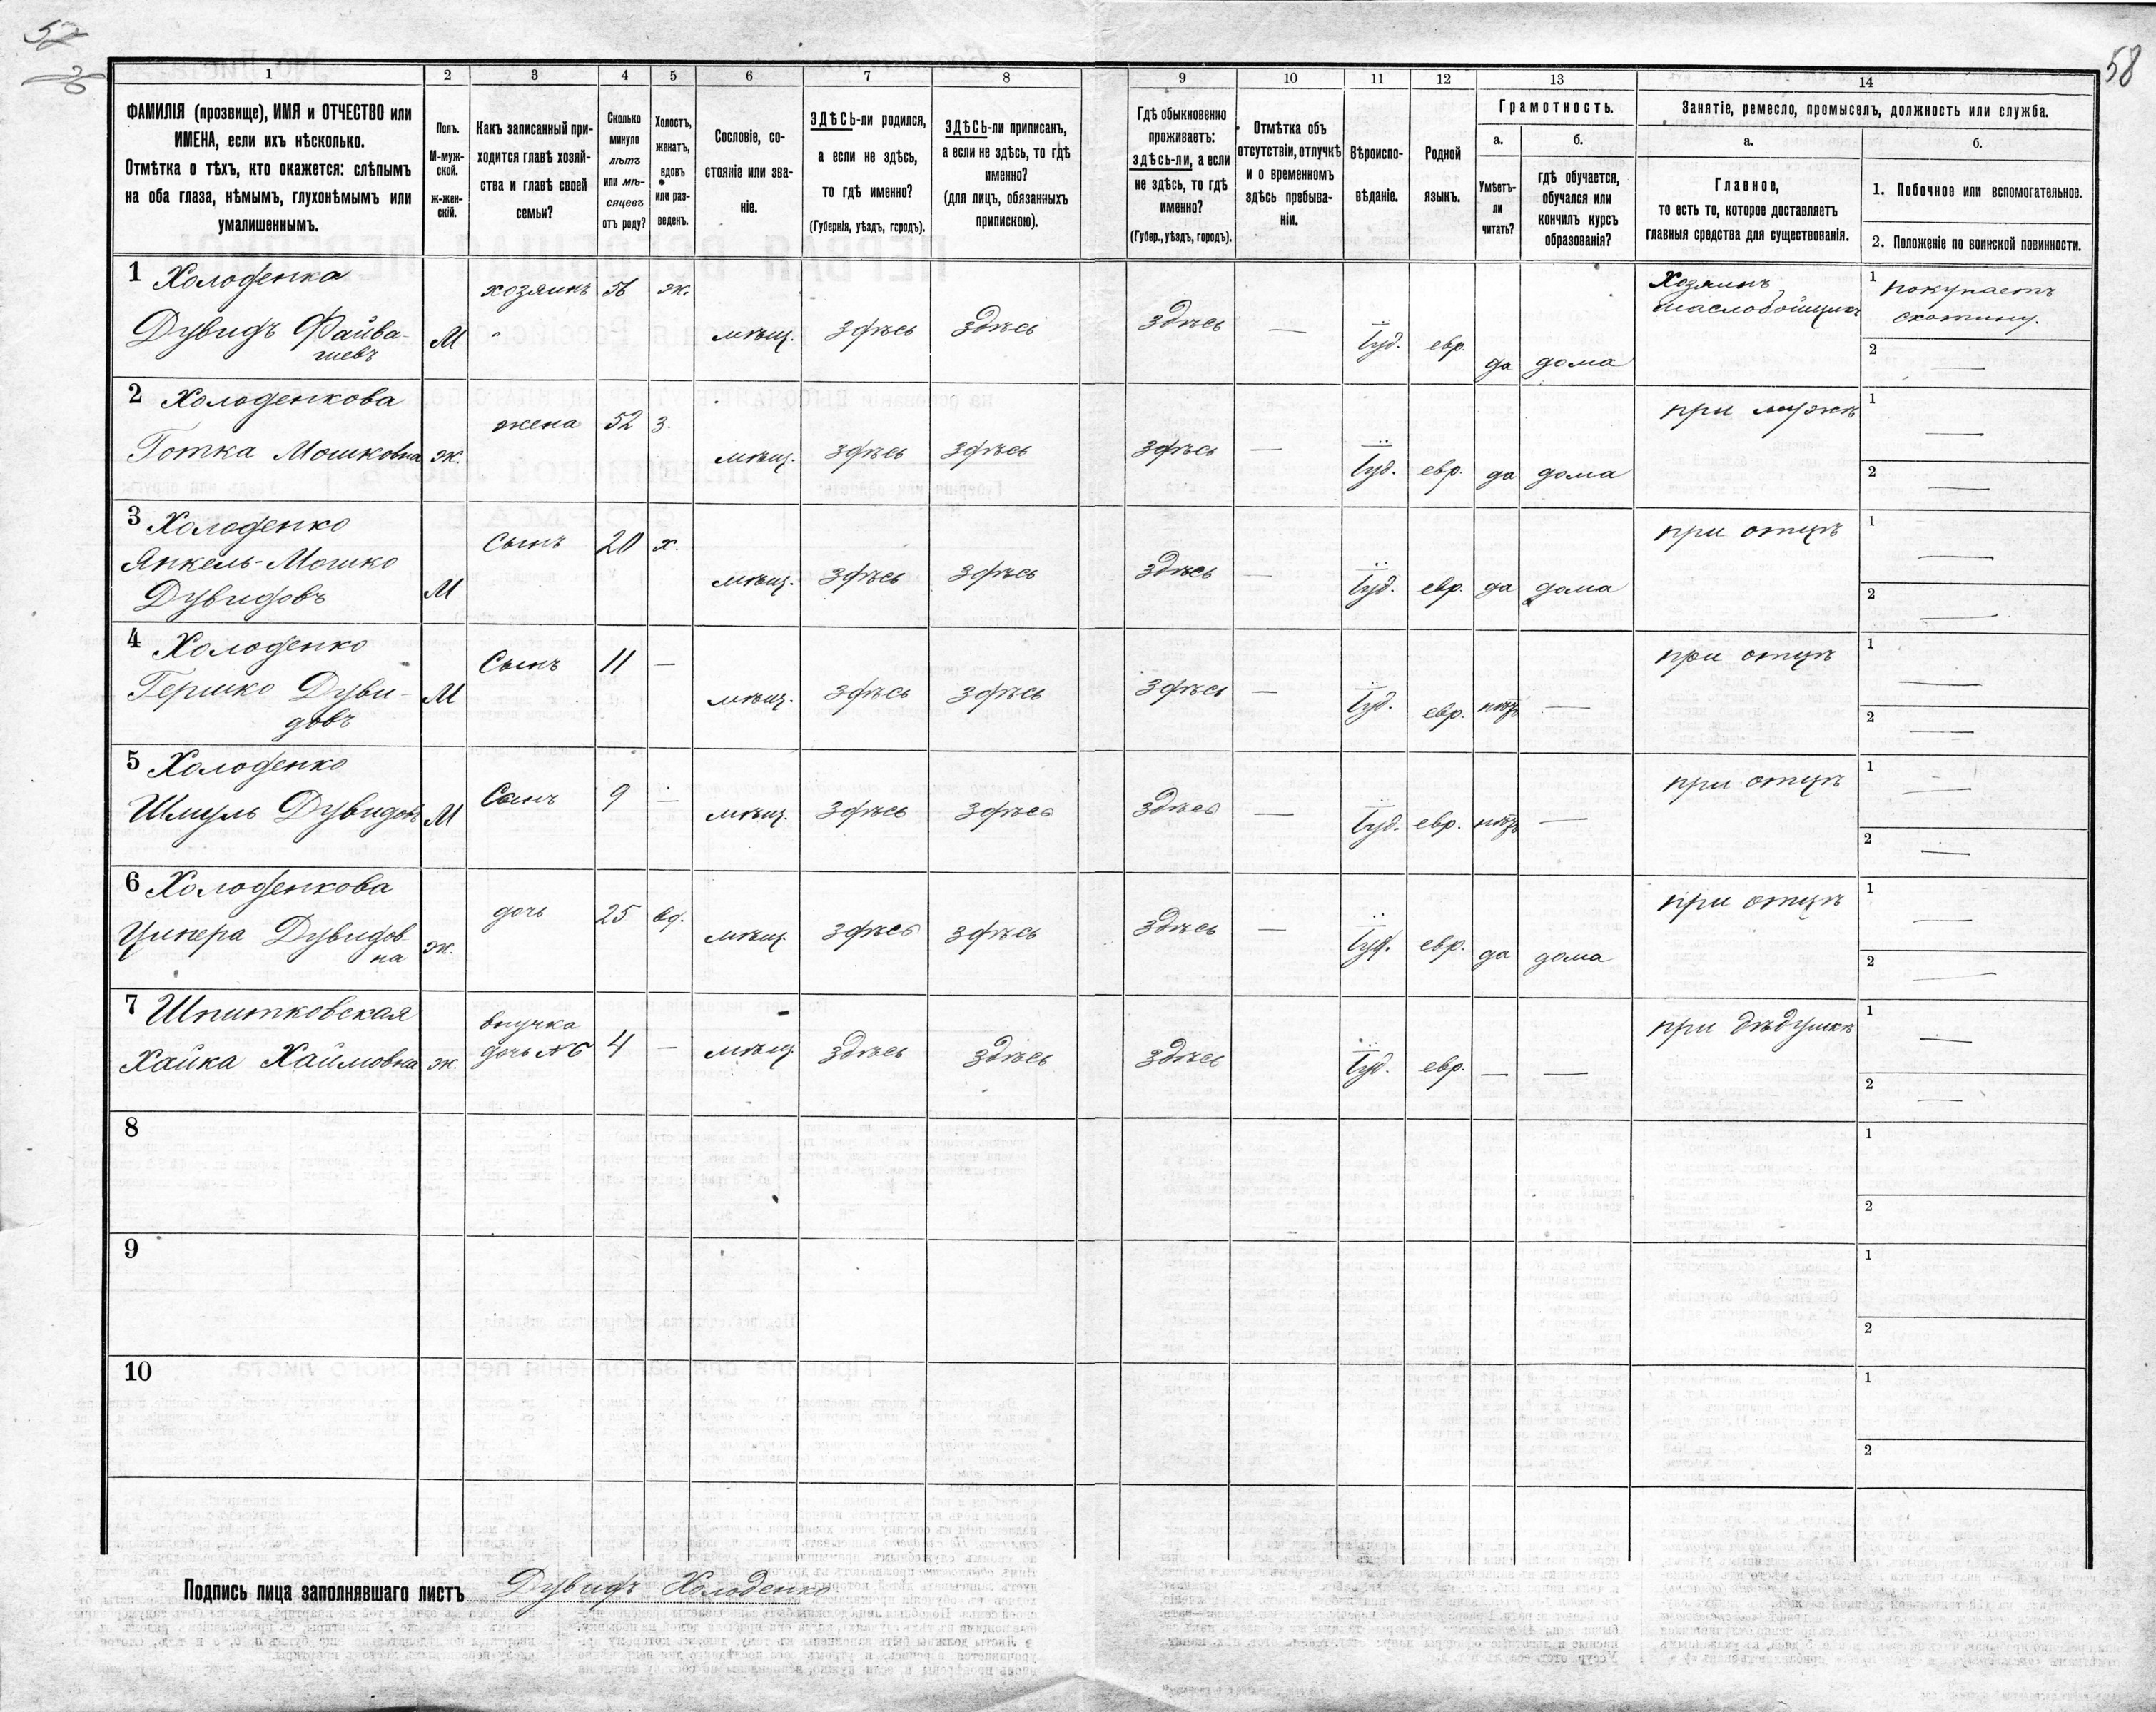 52
58
1 2 3 4 5 6 7 8 9 10 11 12 13 14
ФАМИЛІЯ (прозвище), ИМЯ и ОТЧЕСТВО или
ИМЕНА, если ихъ нѣсколько.
Отмѣтка о тѣхъ, кто окажется: слѣпымъ
на оба глаза, нѣмымъ, глухонѣмымъ или
умалишеннымъ.
Полъ.
М-муж-
ской.
ж-жен-
скій.
Какъ записанный при-
ходится главѣ хозяй-
ства и главѣ своей
семьи?
Сколько
минуло
лѣтъ
или мѣ-
сяцевъ
отъ роду?
Холостъ,
женатъ,
вдовъ
или раз-
веденъ.
Сословіе, со-
стояніе или зва-
ніе.
ЗДѢСЬ-ли родился,
а если не здѣсь,
то гдѣ именно?
(Губернія, уѣздъ, городъ).
ЗДѢСЬ-ли приписанъ,
а если не здѣсь, то гдѣ
именно?
(для лицъ, обязанныхъ
припискою).
Гдѣ обыкновенно
проживаетъ:
здѣсь-ли, а если
не здѣсь, то гдѣ
именно?
(Губер., уѣздъ, городъ).
Отмѣтка объ
отсутствіи, отлучкѣ
и о временномъ
здѣсь пребыва-
ніи.
Вѣроиспо-
вѣданіе.
Родной
языкъ.
Грамотность.
а.
Умѣетъ-
ли
читать?
б.
гдѣ обучается,
обучался или
кончилъ курсъ
образованія?
Занятіе, ремесло, промыселъ, должность или служба.
а.
Главное,
то есть то, которое доставляетъ
главныя средства для существованія.
б.
1. Побочное или вспомогательное.
2. Положеніе по воинской повинности.
1 Холоденка
Дувидъ Файва-
шевъ
М
хозяинъ
56 ж.
мѣщ. здѣсь здѣсь здѣсь — Іуд. евр. да дома
Хозяинъ
маслобойщикъ
1 покупаетъ
скотину.
2 —
2 Холоденкова
Готка Мошковна ж.
жена 52 з.
мѣщ. здѣсь здѣсь здѣсь — Іуд. евр. да дома
при мужѣ
1 —
2 —
3 Холоденко
Янкель-Мошко
Дувидовъ М
Сынъ 20 х.
мѣщ. здѣсь здѣсь здѣсь — Іуд. евр. да дома
при отцѣ
1 —
2 —
4 Холоденко
Гершко Дуви-
довъ
М
Сынъ 11 —
мѣщ. здѣсь здѣсь здѣсь — Іуд. евр. нѣтъ —
при отцѣ
1 —
2 —
5 Холоденко
Шмуль Дувидовъ М
Сынъ 9 —
мѣщ. здѣсь здѣсь здѣсь — Іуд. евр. нѣтъ —
при отцѣ
1 —
2 —
6 Холоденкова
Ципера Дувидов
на
ж.
дочь 25 вд.
мѣщ. здѣсь здѣсь здѣсь — Іуд. евр. да дома
при отцѣ
1 —
2 —
7 Шпитковская
Хайка Хаимовна ж.
внучка
дочь №6 4 —
мѣщ. здѣсь здѣсь здѣсь Іуд. евр. — —
при дѣдушкѣ
1 —
2 —
8
1
2
9
1
2
10
1
2
Подпись лица заполнявшаго листъ Дувидъ Холоденко